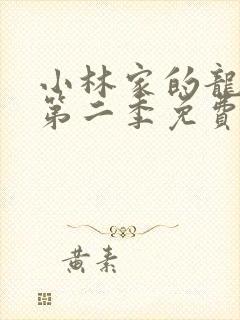 小林家的龍
第二季免費
黃素